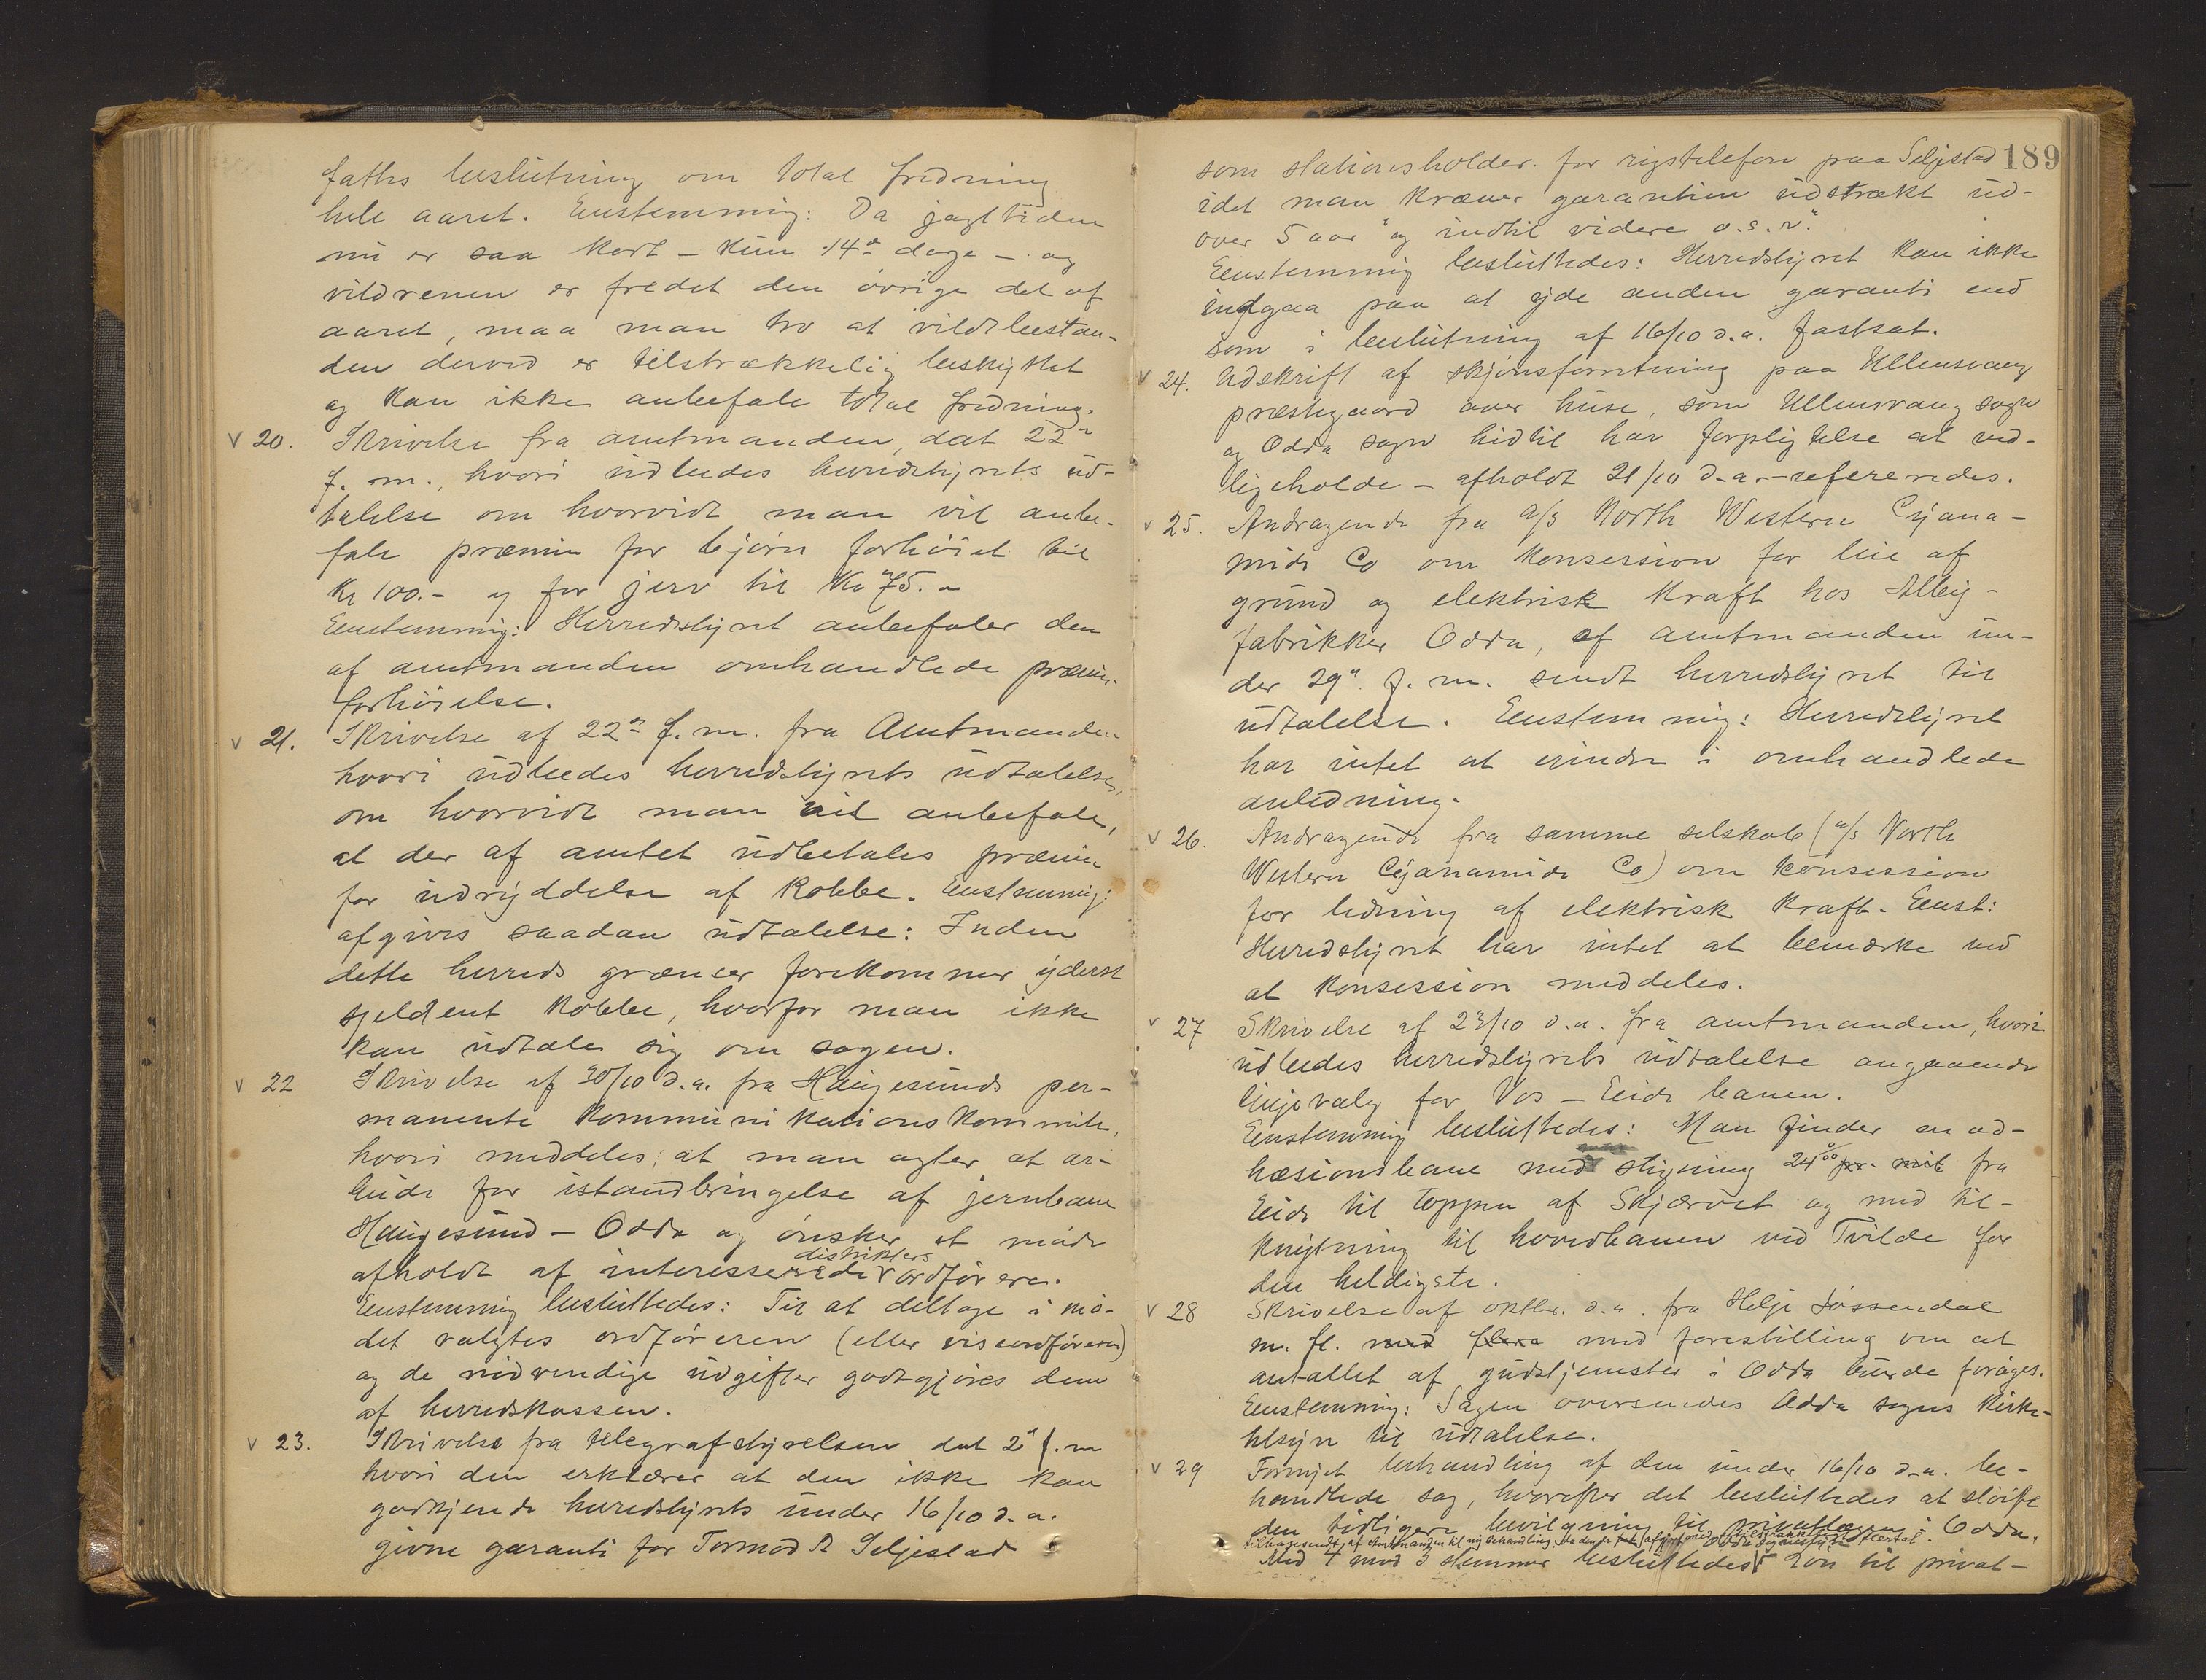 faths beslutning om total fredning
hele aaret. Enstemmig: Da jagttiden
nu er saa kort – kun 14 dage – og
vildrenen er fredet den øvrige del af
aaret, maa man tro at vildtbestan-
den derved er tilstrækkelig beskyttet
og kan ikke anbefale total fredning.
v 20. Skrivelse fra amtmanden, dat 22
f. m., hvori udbedes herredstyrets ud-
talelse om hvorvidt man vil anbe-
fale præmien for bjørn forhøiet til
Kr 100.- og for jerv til Kr 75.-
Enstemmig: Herredstyret anbefaler den
af amtmanden omhandlede præmie-
forhøielse.
v 21. Skrivelse af 22 f. m. fra Amtmanden
hvori udbedes herredstyrets udtalelse,
om hvorvidt man vil anbefale,
at der af amtet udbetales præmie
for udryddelse af Kobbe. Enstemmig:
afgives saadan udtalelse: Inden
dette herreds grænser forekommer yderst
sjeldent Kobbe, hvorfor man ikke
kan udtale sig om sagen.
v 22 Skrivelse af 30/10 d. a. fra Haugesunds per-
manente Kommunikationskommite,
hvori meddeles, at man agter at ar-
beide for istandbringelse af jernbane
Haugesund – Odda og ønsker et møde
distrikters
afholdt af interesserede ordførere.
Enstemmig besluttedes: Til at deltage i mø-
det valgtes ordføreren (eller viseordføreren)
og de nødvendige udgifter godtgjøres dem
af herredskassen.
v 23. Skrivelse fra telegrafstyrelsen dat 2 f. m
hvori den erklærer at den ikke kan
godkjende herredstyrets under 16/10 d. a.
givne garanti for Tormod R Seljestad
189
som stationsholder for rigstelefon paa Seljestad
idet man kræver garantien udstrakt ud-
over 5 aar "og indtil videre o.s.v."
Eenstemmig besluttedes: Herredstyret kan ikke
indgaa paa at yde anden garanti end
som i beslutning af 16/10 d. a. fastsat.
v 24. Udskrift af skjønsforretning paa Ullensvang
præstegaard over huse, som Ullensvang sogn
og Odda sogn hidtil har forpligtelse at ved-
ligeholde – afholdt 21/10 d. a. – refereredes.
v 25. Andragende fra A/S North Western Cyana-
mide Co om Konsession for leie af
grund og elektrisk Kraft hos Alby-
fabrikker Odda, af amtmanden un-
der 29 f. m. sendt herredstyret til
udtalelse. Eenstemmig: Herredstyret
har intet at erindre i omhandlede
anledning.
v 26. Andragende fra samme selskab (A/S North
Western Cyanamide Co) om konsession
for ledning af elektrisk Kraft. Eenst:
Herredstyret har intet at bemærke ved
at Konsession meddeles.
v 27 Skrivelse af 23/10 d. a. fra amtmanden, hvori
udbedes herredstyrets udtalelse angaaende
linjevalg for Vos – Eide banen.
Eenstemmig besluttedes: Man finder en ad-
hæsionsbane med stigning 24 ‰ pr. mil fra
Eide til toppen af Skjærvet og med til-
knytning til hovedbanen ved Tvilde for
den heldigste.
v 28 Skrivelse af oktbr. d. a. fra Helje Jøssendal
m. fl. med flere med forestilling om at
antallet af gudstjenester i Odda burde forøges.
Eenstemmig: Sagen oversendes Odda sogns Kirke-
tilsyn til udtalelse.
v 29 Fornyet behandling af den under 16/10 d. a. be-
handlede sag, hvorefter det besluttedes at sløife
den tidligere bevilgning til privatlægen i Odda.
tilbagesendt af Amtmanden til ny behandling, da den er
Med 4 mod 3 stemmer besluttedes: Løn til privat-